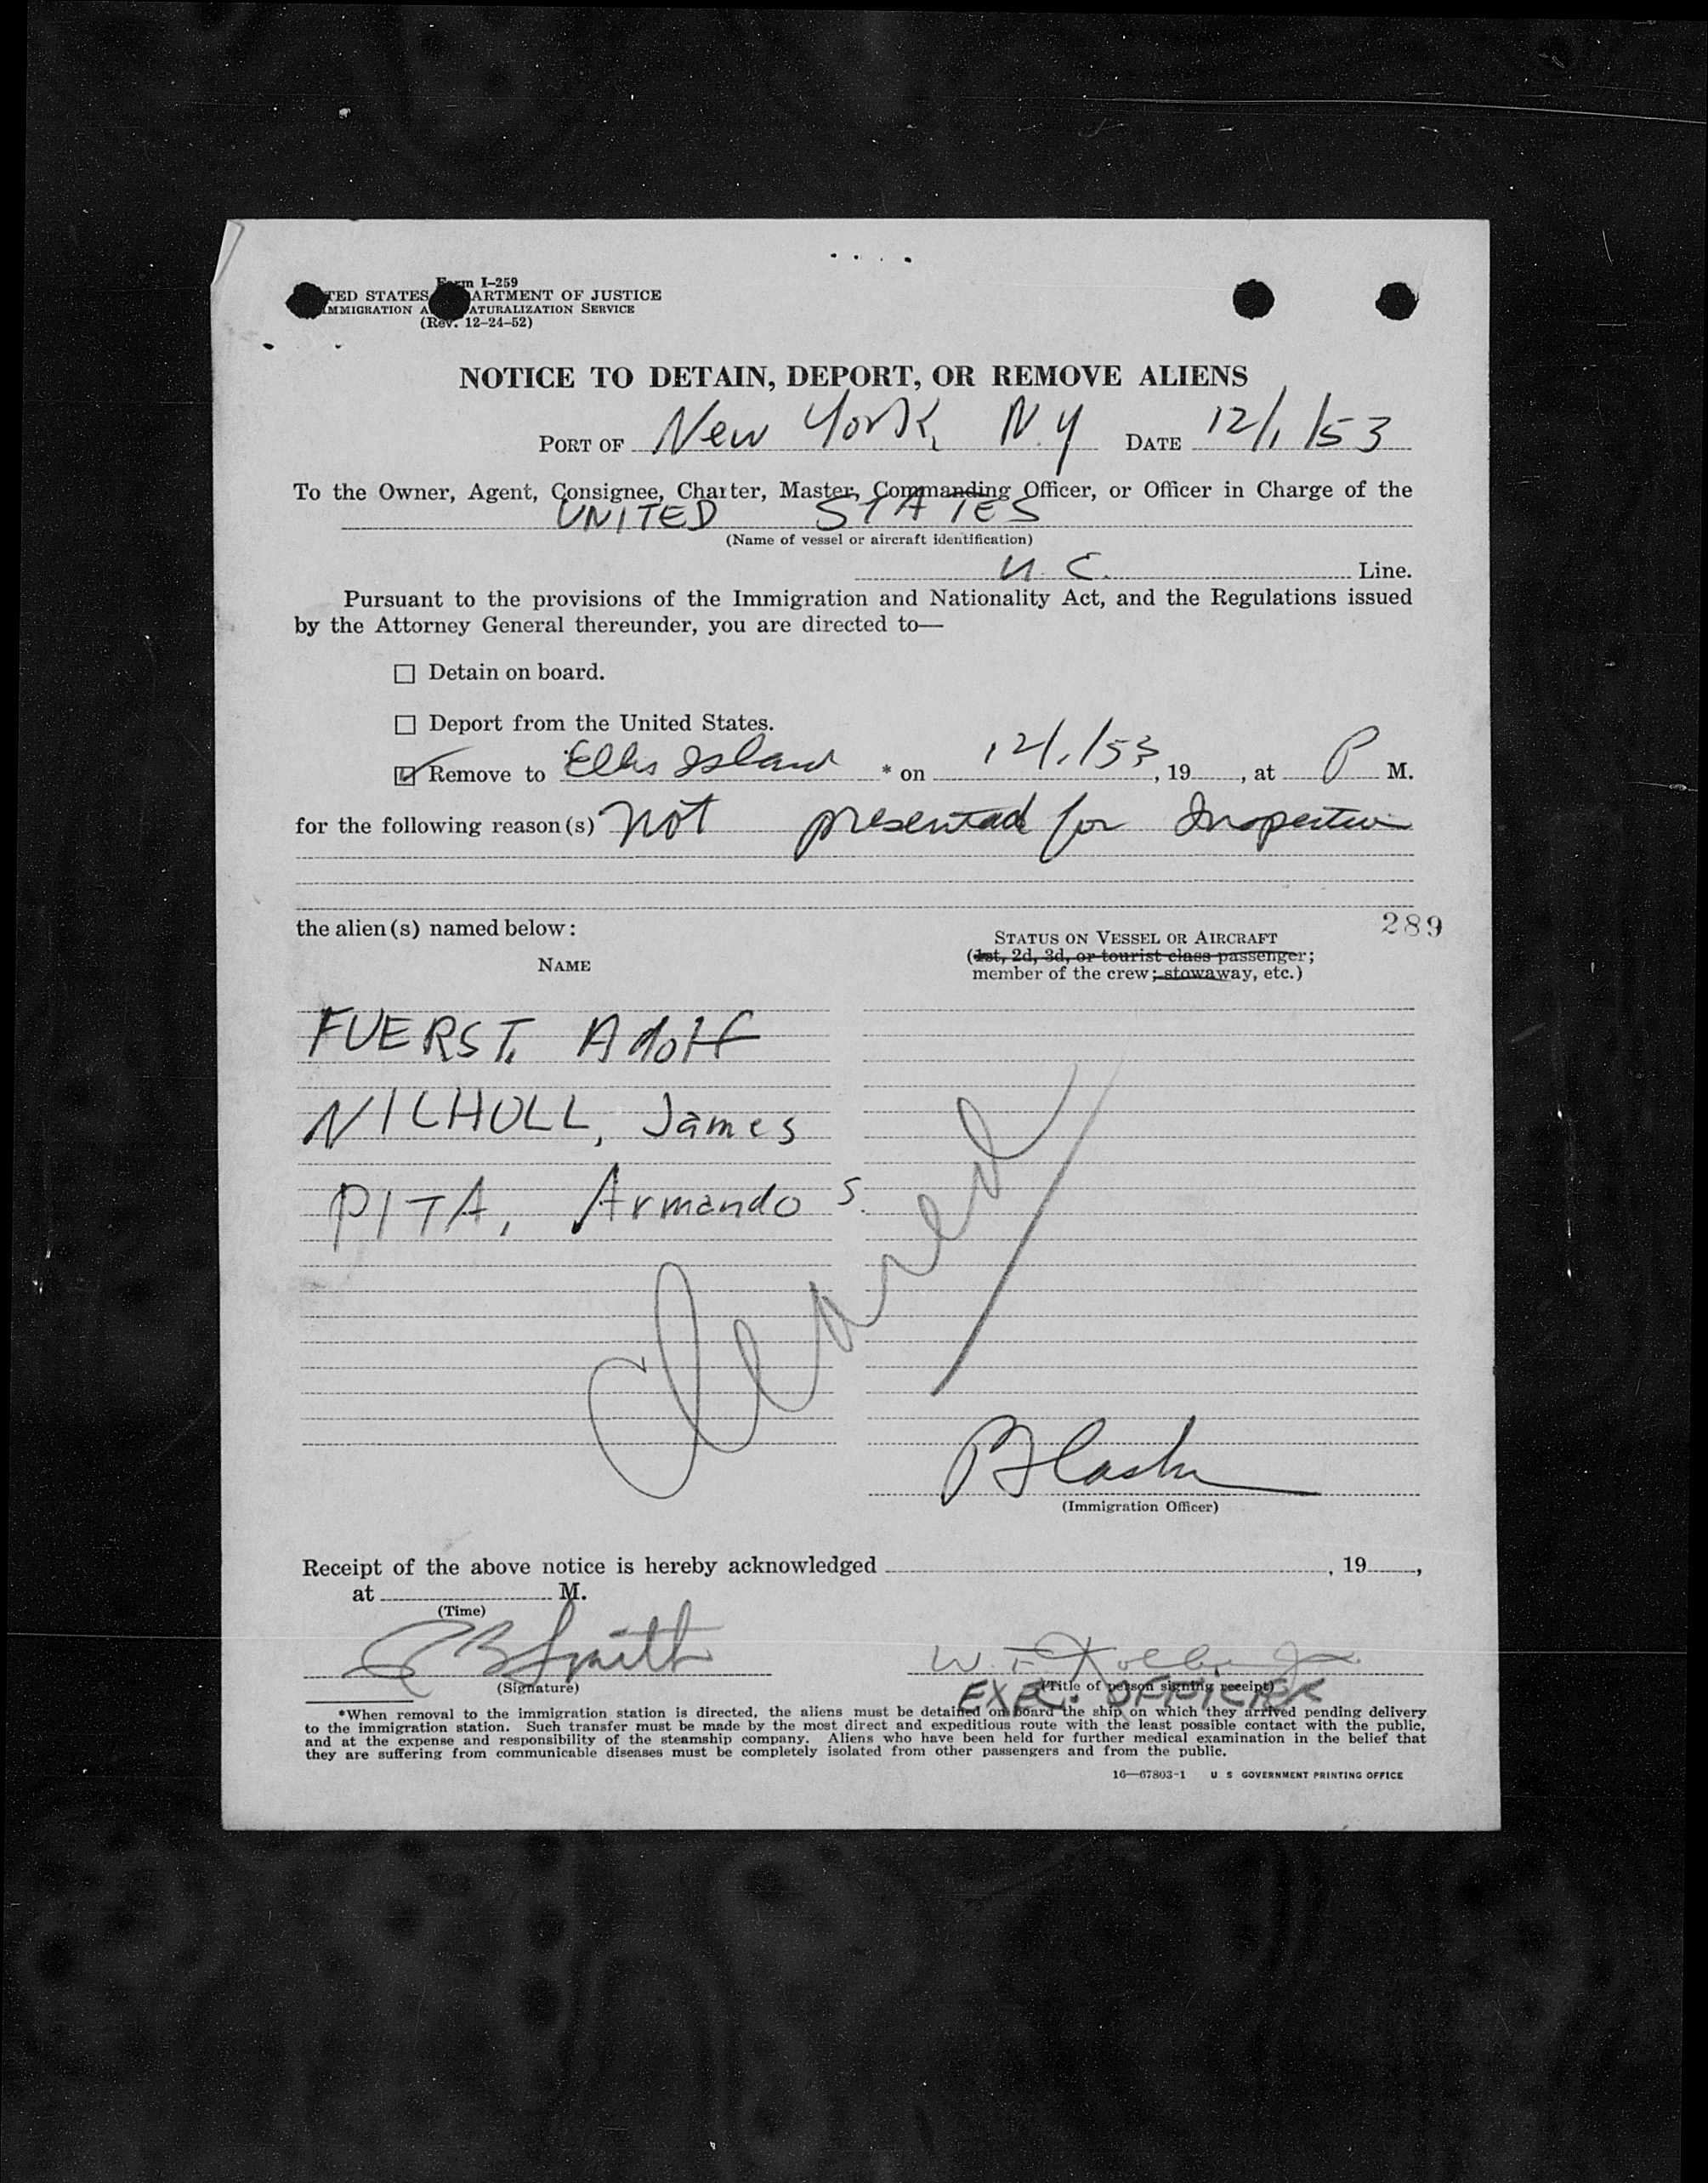 Form I-259
UNITED STATES DEPARTMENT OF JUSTICE
IMMIGRATION AND NATURALIZATION SERVICE
(Rev. 12-24-52)
NOTICE TO DETAIN, DEPORT, OR REMOVE ALIENS
PORT OF New York, N.Y DATE 12/1/53
To the Owner, Agent, Consignee, Charter, Master, Commanding Officer, or Officer in Charge of the
UNITED STATES
(Name of vessel or aircraft identification)
Line.
Pursuant to the provisions of the Immigration and Nationality Act, and the Regulations issued
by the Attorney General thereunder, you are directed to—
☐ Detain on board.
☐ Deport from the United States.
☑ Remove to Ellis Island * on 12/1/53, 19__, at P M.
for the following reason(s) Not presented for Inspection
the alien(s) named below:
289
NAME
STATUS ON VESSEL OR AIRCRAFT
(1st, 2d, 3d, or tourist class passenger;
member of the crew; stowaway, etc.)
FUERST, Adolf
NICHOLL, James
PITA, Armando S.
Cleared
(Immigration Officer)
Receipt of the above notice is hereby acknowledged , 19__,
at M.
(Time)
Smith
(Signature)
(Title of person signing receipt)
EXEC. OFFICER
*When removal to the immigration station is directed, the aliens must be detained on board the ship on which they arrived pending delivery
to the immigration station. Such transfer must be made by the most direct and expeditious route with the least possible contact with the public,
and at the expense and responsibility of the steamship company. Aliens who have been held for further medical examination in the belief that
they are suffering from communicable diseases must be completely isolated from other passengers and from the public.
16—67803-1 U S GOVERNMENT PRINTING OFFICE